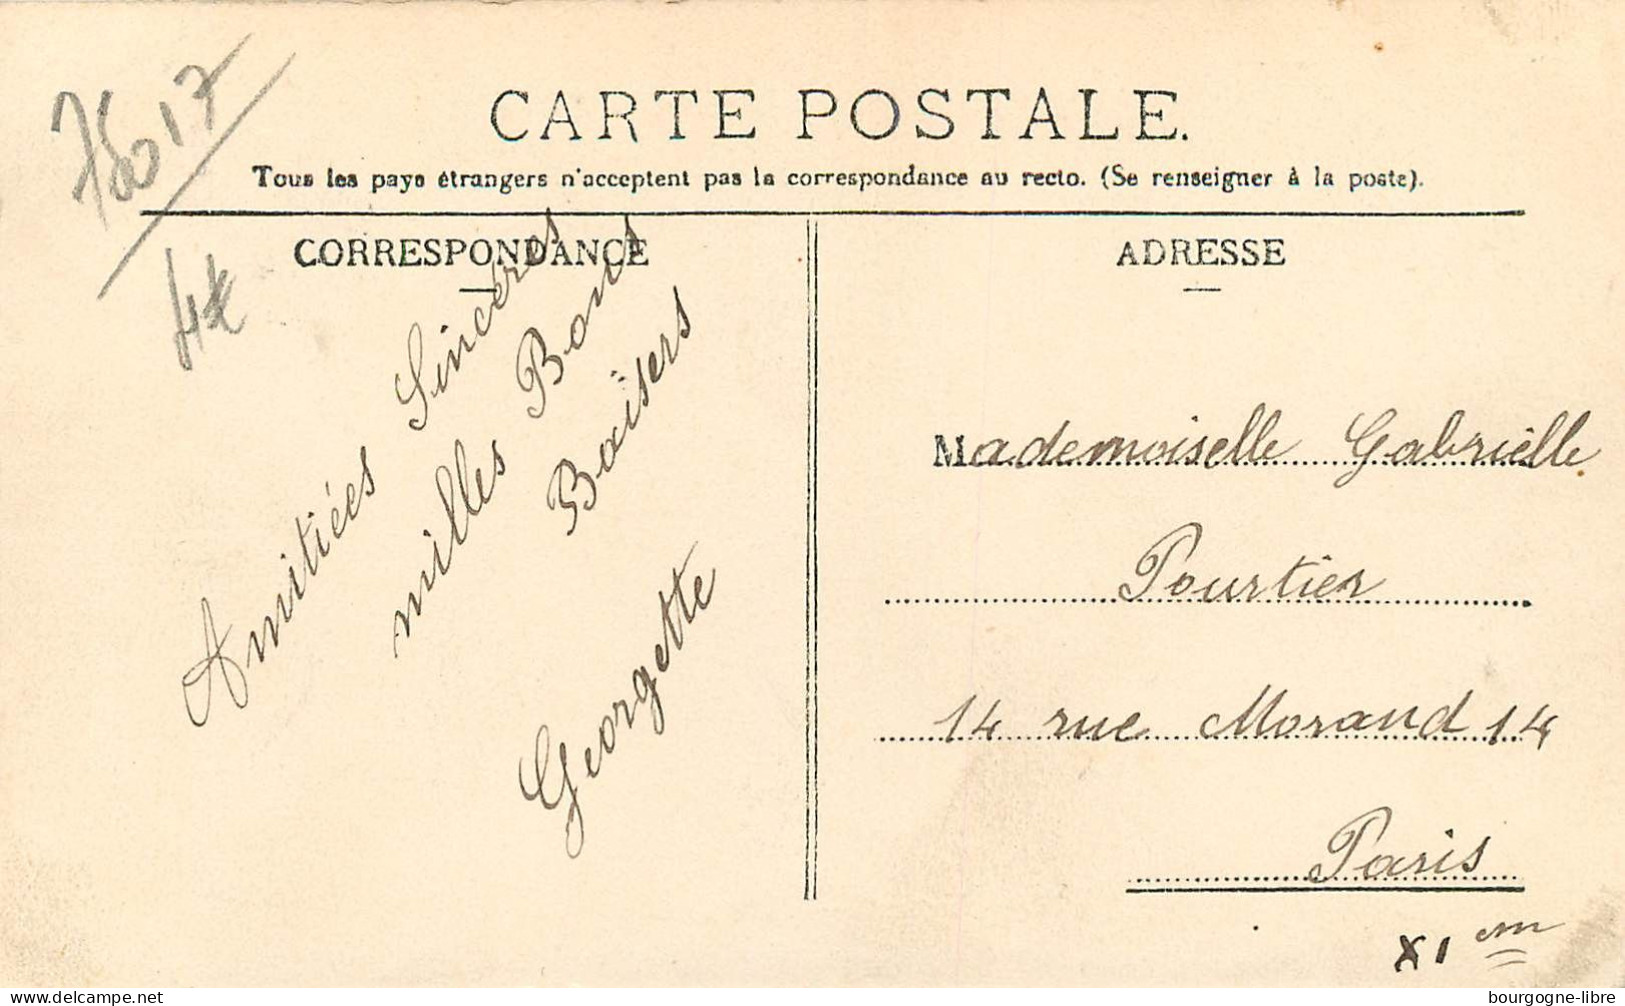 75017
4€
CARTE POSTALE.
Tous les pays étrangers n'acceptent pas la correspondance au recto. (Se renseigner à la poste).
CORRESPONDANCE
Amitiées Sincéres
milles Bons
Baïsers
Georgette
ADRESSE
Mademoiselle Gabrielle
Pourtier
14 rue Morand 14
Paris
XI em
bourgogne-libre